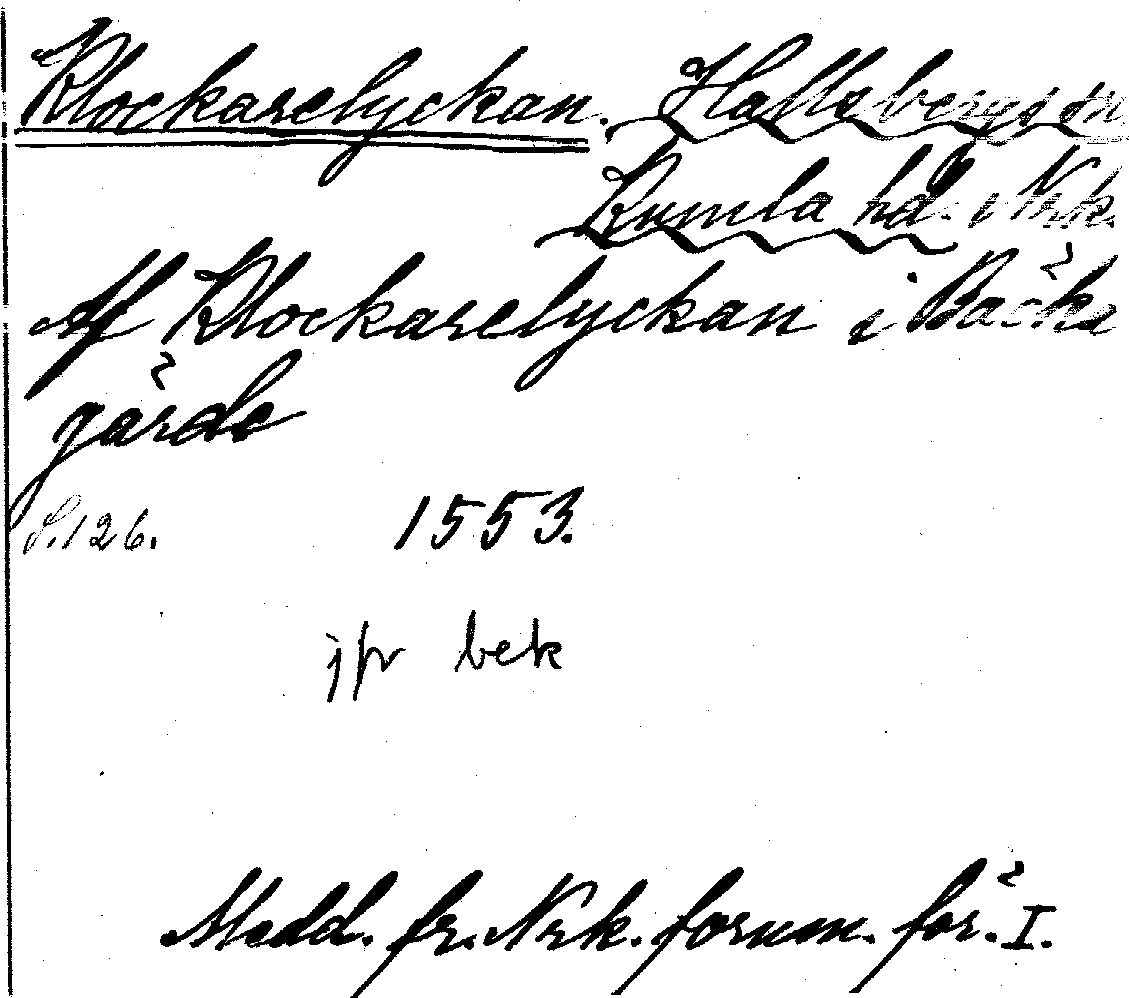 Klockarelyckan. Hallsbergs sn
Kumla hd. i Nrk.
Af Klockarelyckan i Bäcka
gärde
S. 126. 1553.
jfr bek
Medd. fr. Nrk. fornm. för. I.